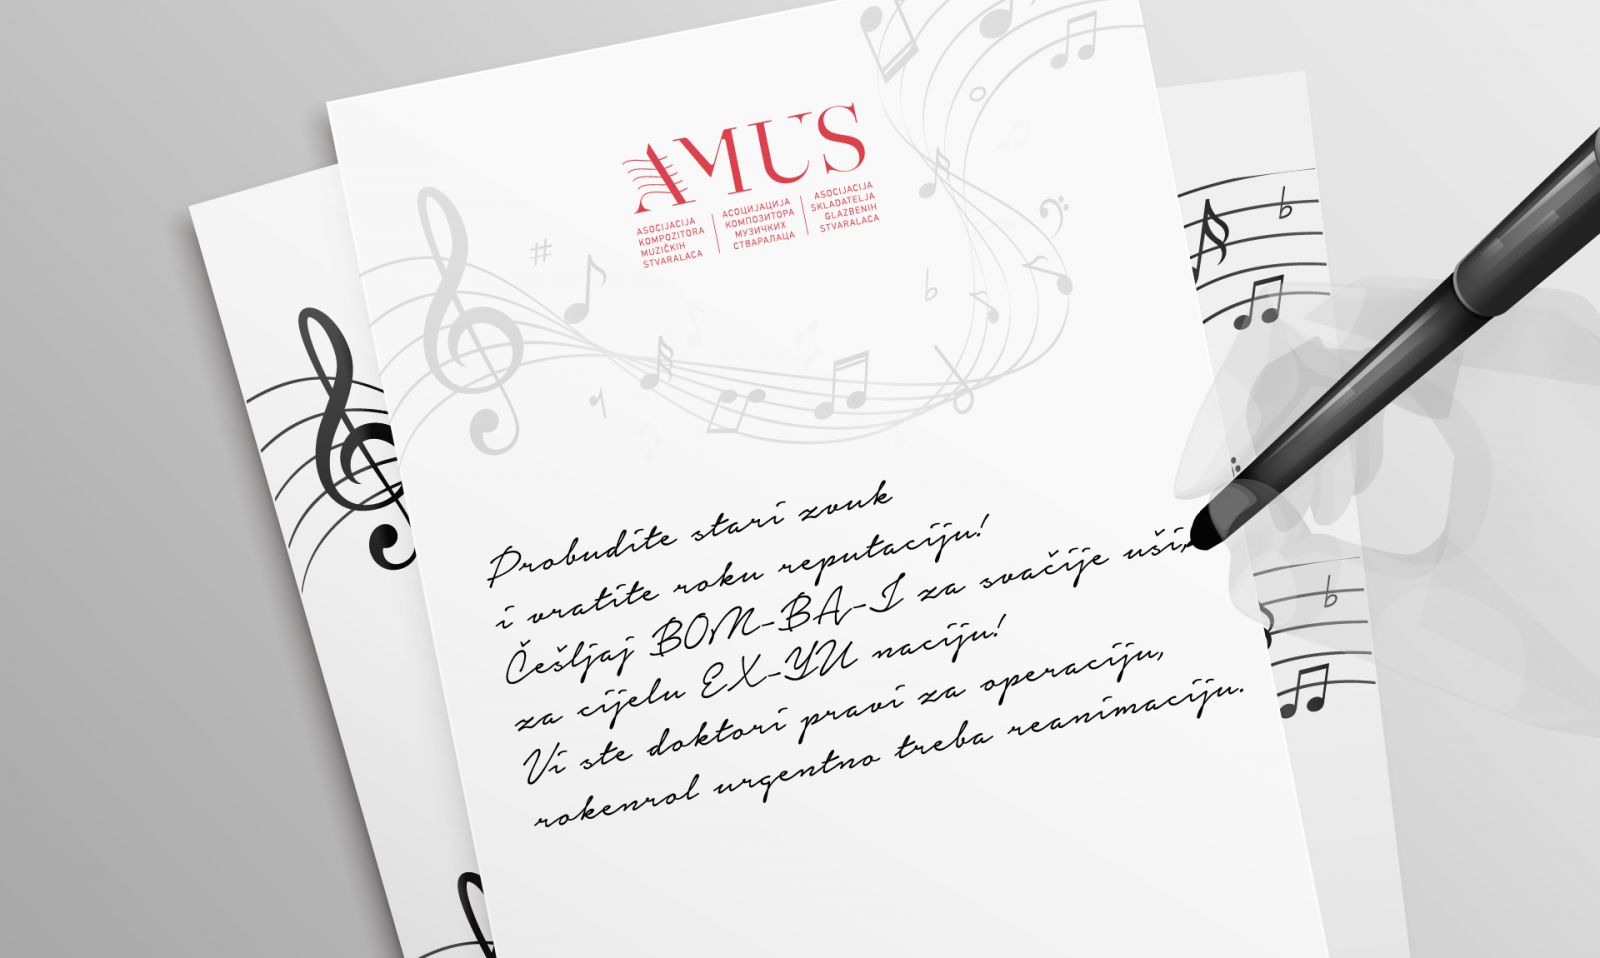 AMUS
ASOCIJACIJA
KOMPOZITORA
MUZIČKIH
STVARALACA
АСОЦИЈАЦИЈА
КОМПОЗИТОРА
МУЗИЧКИХ
СТВАРАЛАЦА
ASOCIJACIJA
SKLADATELJA
GLAZBENIH
STVARALACA
Probudite stari zvuk
i vratite roku reputaciju!
Češljaj BOM-BA-I za svačije uši,
za cijelu EX-YU naciju!
Vi ste doktori pravi za operaciju,
rokenrol urgentno treba reanimaciju.